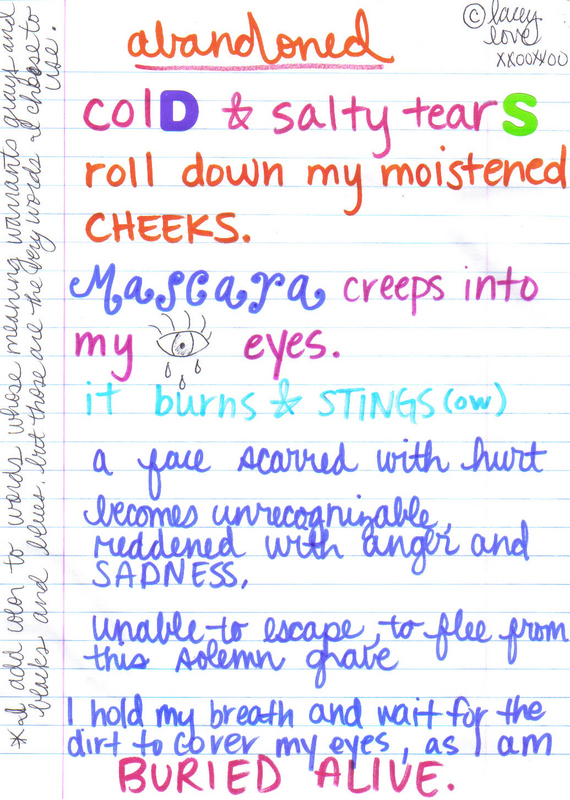 abandoned
© lacey
love
xxooxxoo
colD & salty tearS
roll down my moistened
CHEEKS.
Mascara creeps into
my eyes.
it burns & STINGS (ow)
a face scarred with hurt
becomes unrecognizable,
reddened with anger and
SADNESS,
unable to escape, to flee from
this solemn grave
I hold my breath and wait for the
dirt to cover my eyes, as I am
BURIED ALIVE.
*I add color to words whose meaning warrants grays and
blacks and blues. but those are the very words I choose to
use.